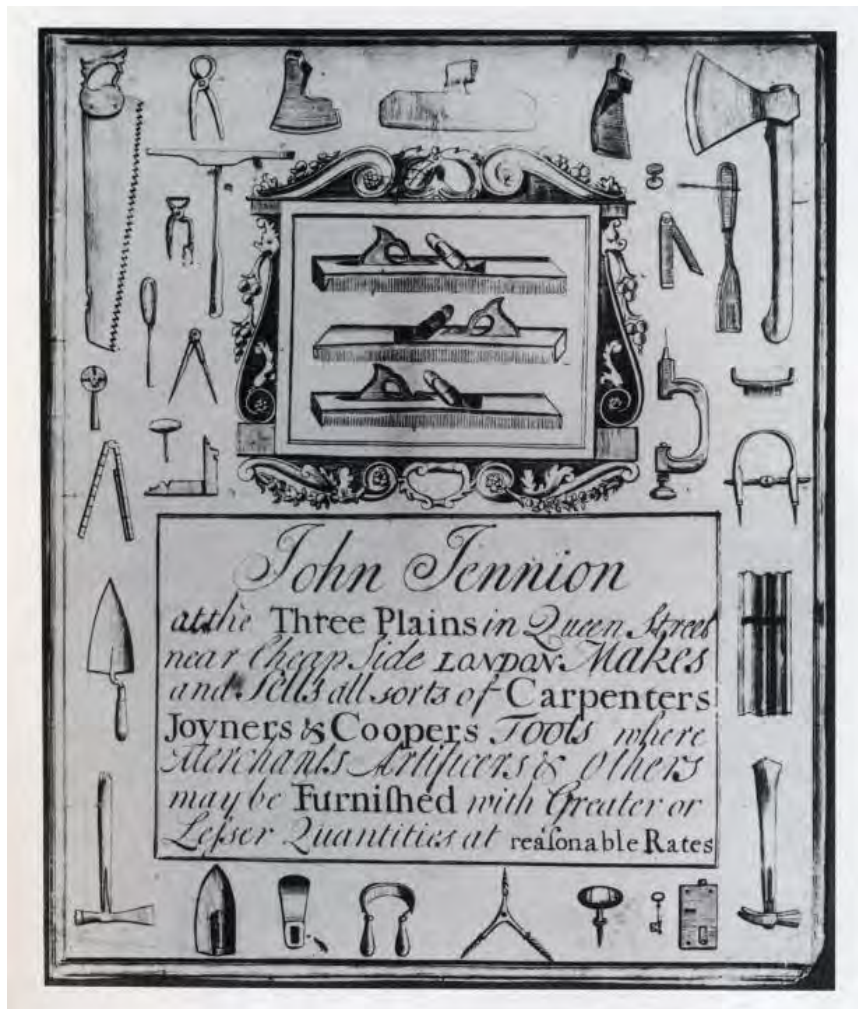 John Jennion
at the Three Plains in Queen Street
near Cheap Side LONDON. Makes
and Sells all sorts of Carpenters
Joyners & Coopers Tools where
Merchants Artificers & Others
may be Furniſhed with Greater or
Leſser Quantities at reaſonable Rates